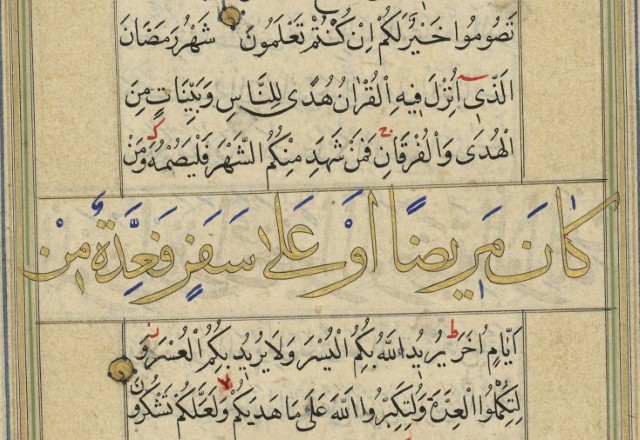 تَصُومُوا خَيْرٌ لَكُمْ اِنْ كُنْتُمْ تَعْلَمُونَ شَهْرُ رَمَضَانَ
الَّذٖى اُنْزِلَ فٖيهِ الْقُرْاٰنُ هُدًى لِلنَّاسِ وَبَيِّنَاتٍ مِنَ
الْهُدٰى وَالْفُرْقَانِ فَمَنْ شَهِدَ مِنْكُمُ الشَّهْرَ فَلْيَصُمْهُ وَمَنْ
كَانَ مَرٖيضًا اَوْ عَلٰى سَفَرٍ فَعِدَّةٌ مِنْ
اَيَّامٍ اُخَرَ يُرٖيدُ اللّٰهُ بِكُمُ الْيُسْرَ وَلَا يُرٖيدُ بِكُمُ الْعُسْرَ وَ
لِتُكْمِلُوا الْعِدَّةَ وَلِتُكَبِّرُوا اللّٰهَ عَلٰى مَا هَدٰيكُمْ وَلَعَلَّكُمْ تَشْكُرُونَ